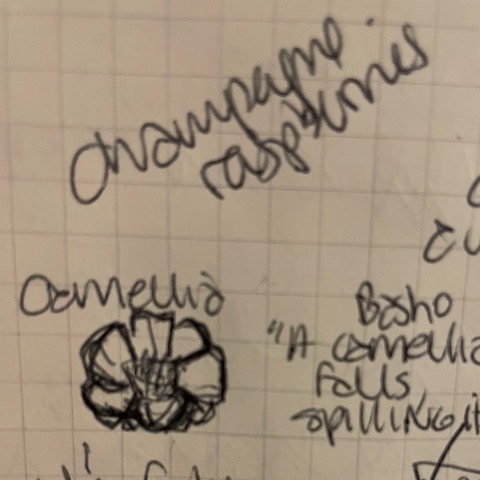 Champagne
raspberries
Camellia
Basho
"A camellia
falls
spilling it